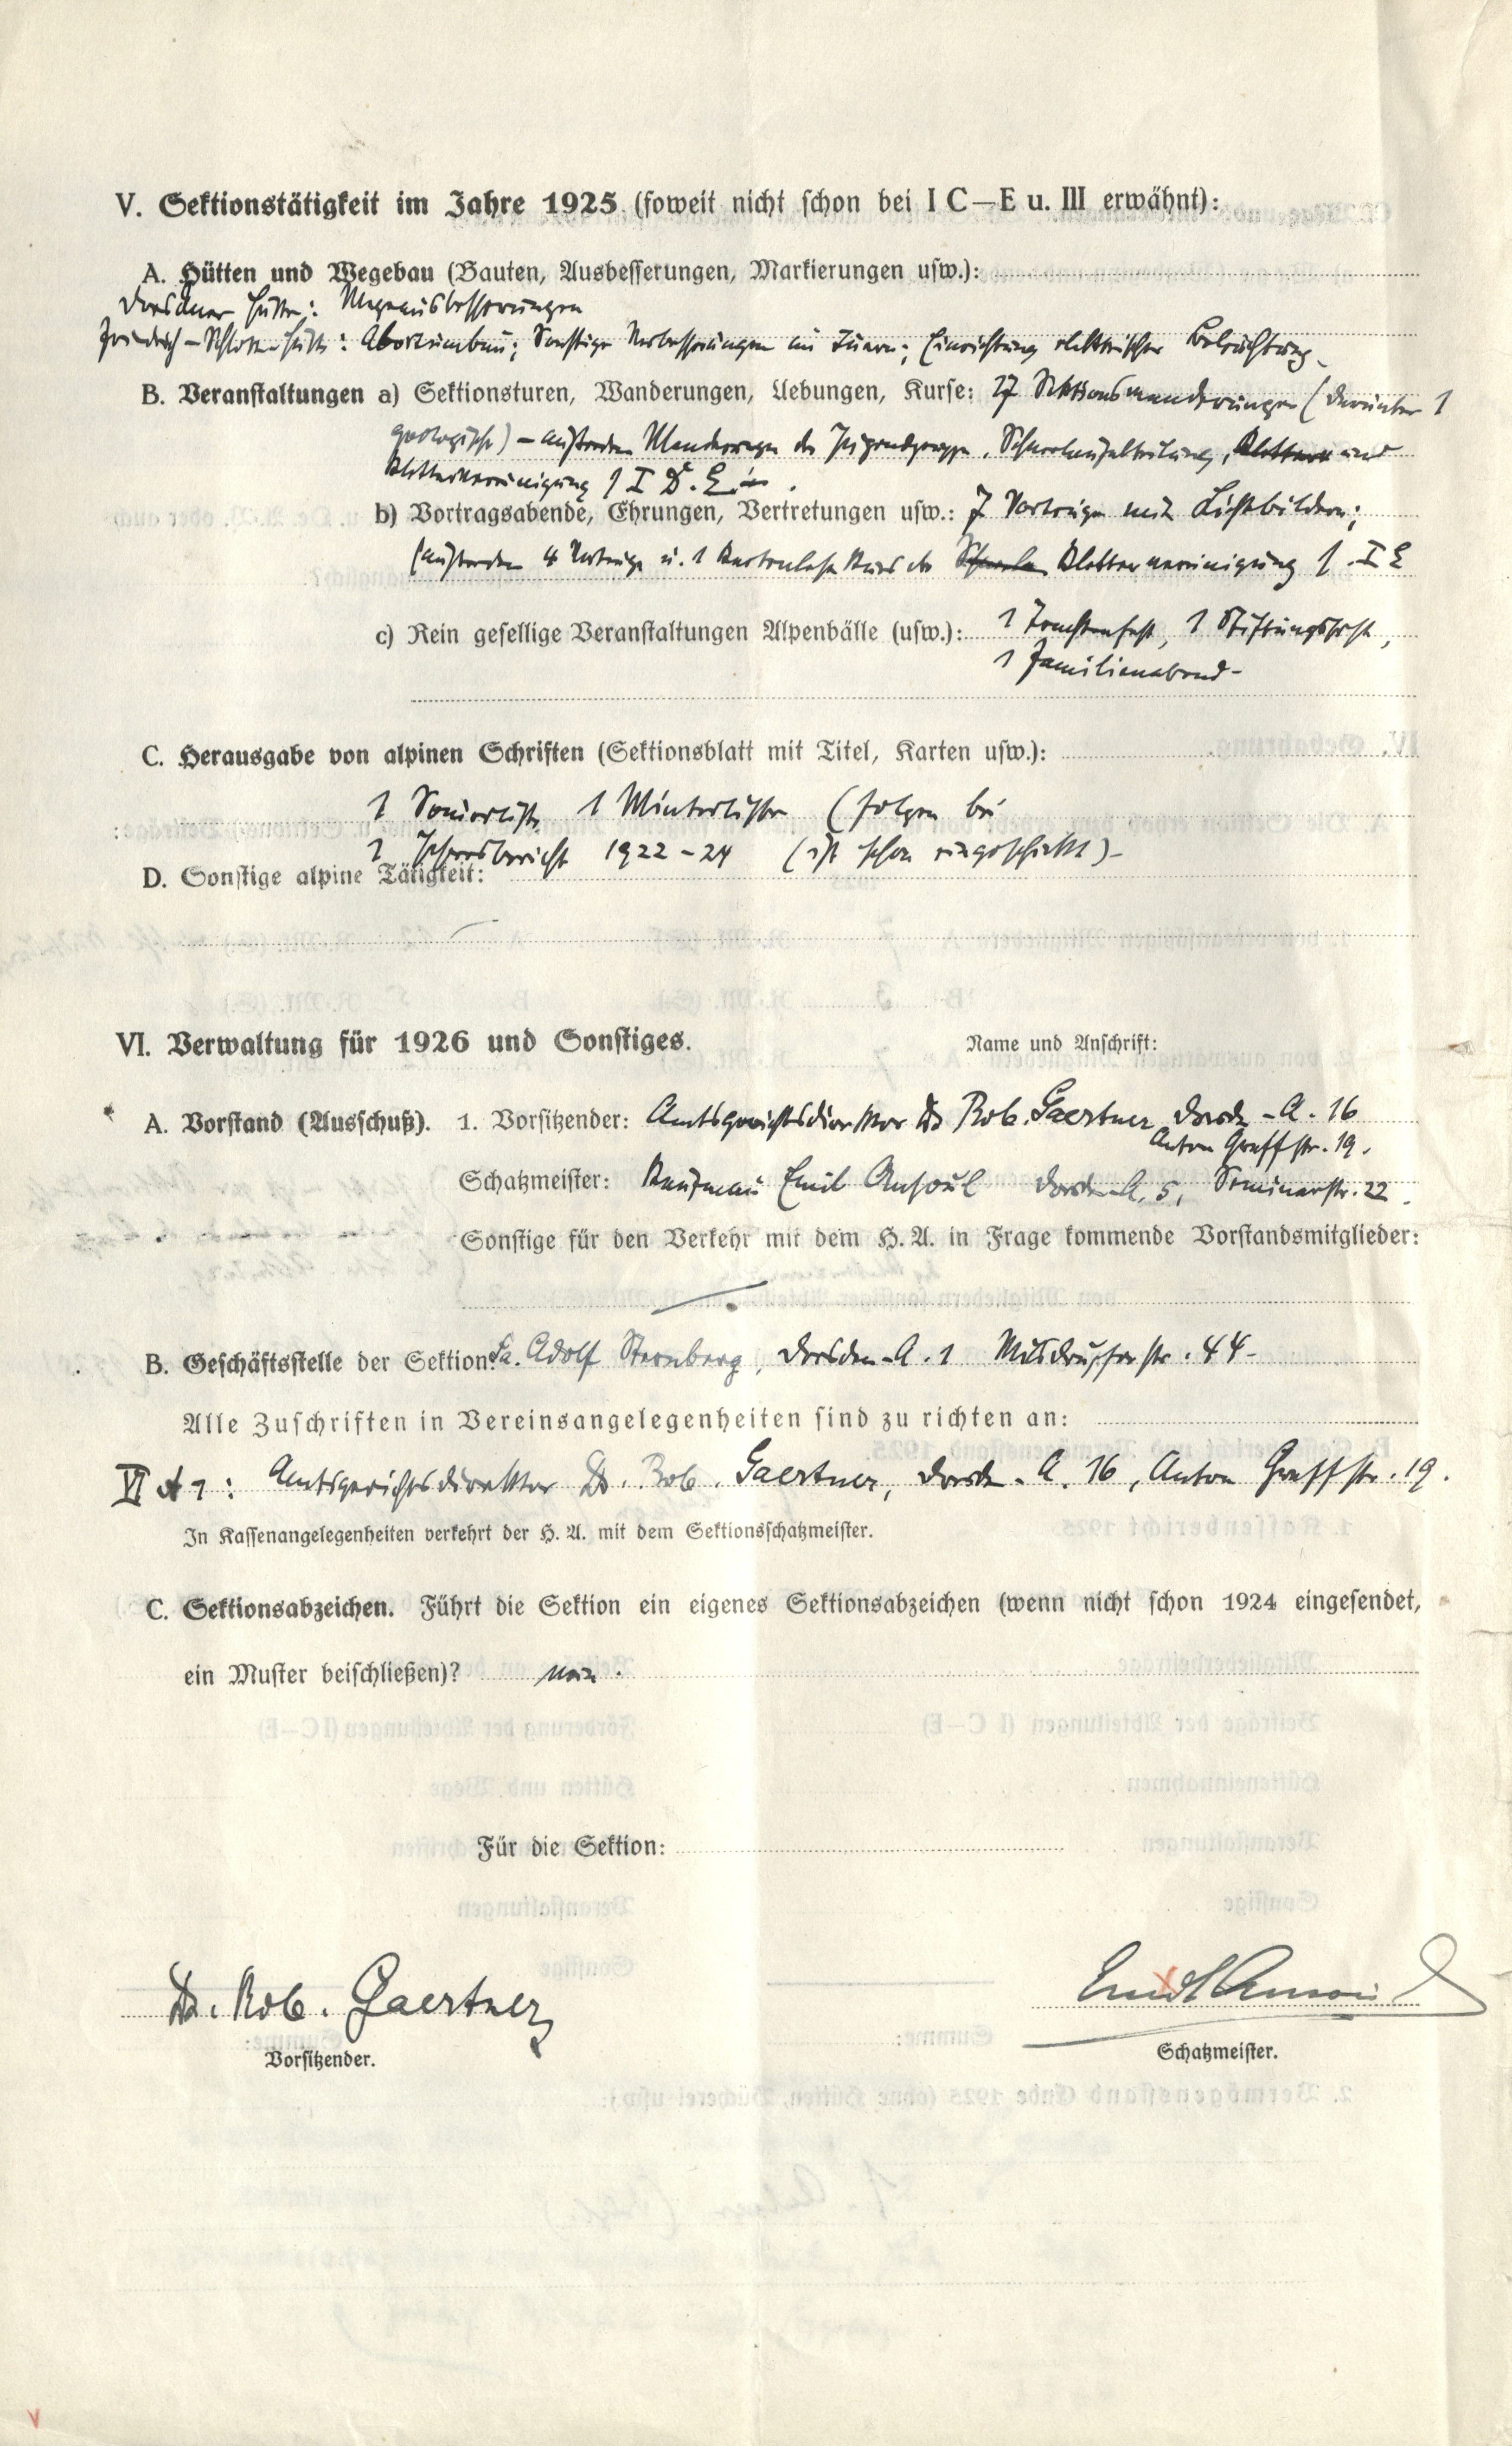 V. Sektionstätigkeit im Jahre 1925 (soweit nicht schon bei I C—E u. III erwähnt):
A. Hütten und Wegebau (Bauten, Ausbesserungen, Markierungen usw.):
Dresdner Hütte: Wegeausbesserungen
Friedrich-Schlosser-Hütte: Abortumbau; Sonstige Verbesserungen im Innern; Einrichtung elektrischer Beleuchtung.
B. Veranstaltungen a) Sektionsturen, Wanderungen, Uebungen, Kurse: 27 Sektionswanderungen (darunter 1
geologische) – außerdem Wanderungen der Jugendgruppe, Schneelaufabteilung, Kletter und
Klettervereinigung f I D. E.
b) Vortragsabende, Ehrungen, Vertretungen usw.: 7 Vorträge mit Lichtbildern;
(außerdem 4 Vorträge u. 1 Kartenlese Kurs der Klettervereinigung f. I E
c) Rein gesellige Veranstaltungen Alpenbälle (usw.): 1 Trachtenfest, 1 Stiftungsfest,
1 Familienabend-
C. Herausgabe von alpinen Schriften (Sektionsblatt mit Titel, Karten usw.):
1 1 Winterliste (folgen bei
1 Jahresbericht 1922–24 (ist schon eingeschickt)-
D. Sonstige alpine Tätigkeit:
VI. Verwaltung für 1926 und Sonstiges.
Name und Anschrift:
A. Vorstand (Ausschuß). 1. Vorsitzender: Amtsgerichtsdirektor Dr Rob. Gaertner, Dresden-A. 16
Anton Graffstr. 19.
Schatzmeister: Kaufmann Emil Ansoul Dresden-A. 5, Seminarstr. 22.
Sonstige für den Verkehr mit dem H. A. in Frage kommende Vorstandsmitglieder:
B. Geschäftsstelle der Sektion: Fa. Adolf Sternberg, Dresden-A. 1 Wilsdrufferstr. 44-
Alle Zuschriften in Vereinsangelegenheiten sind zu richten an:
VI A 1: Amtsgerichtsdirektor Dr. Rob. Gaertner, Dresden-A. 16, Anton Graffstr. 19.
In Kassenangelegenheiten verkehrt der H. A. mit dem Sektionsschatzmeister.
C. Sektionsabzeichen. Führt die Sektion ein eigenes Sektionsabzeichen (wenn nicht schon 1924 eingesendet,
ein Muster beischließen)? nein.
Für die Sektion:
Dr. Rob. Gaertner
Emil Ansoul
Vorsitzender.
Schatzmeister.